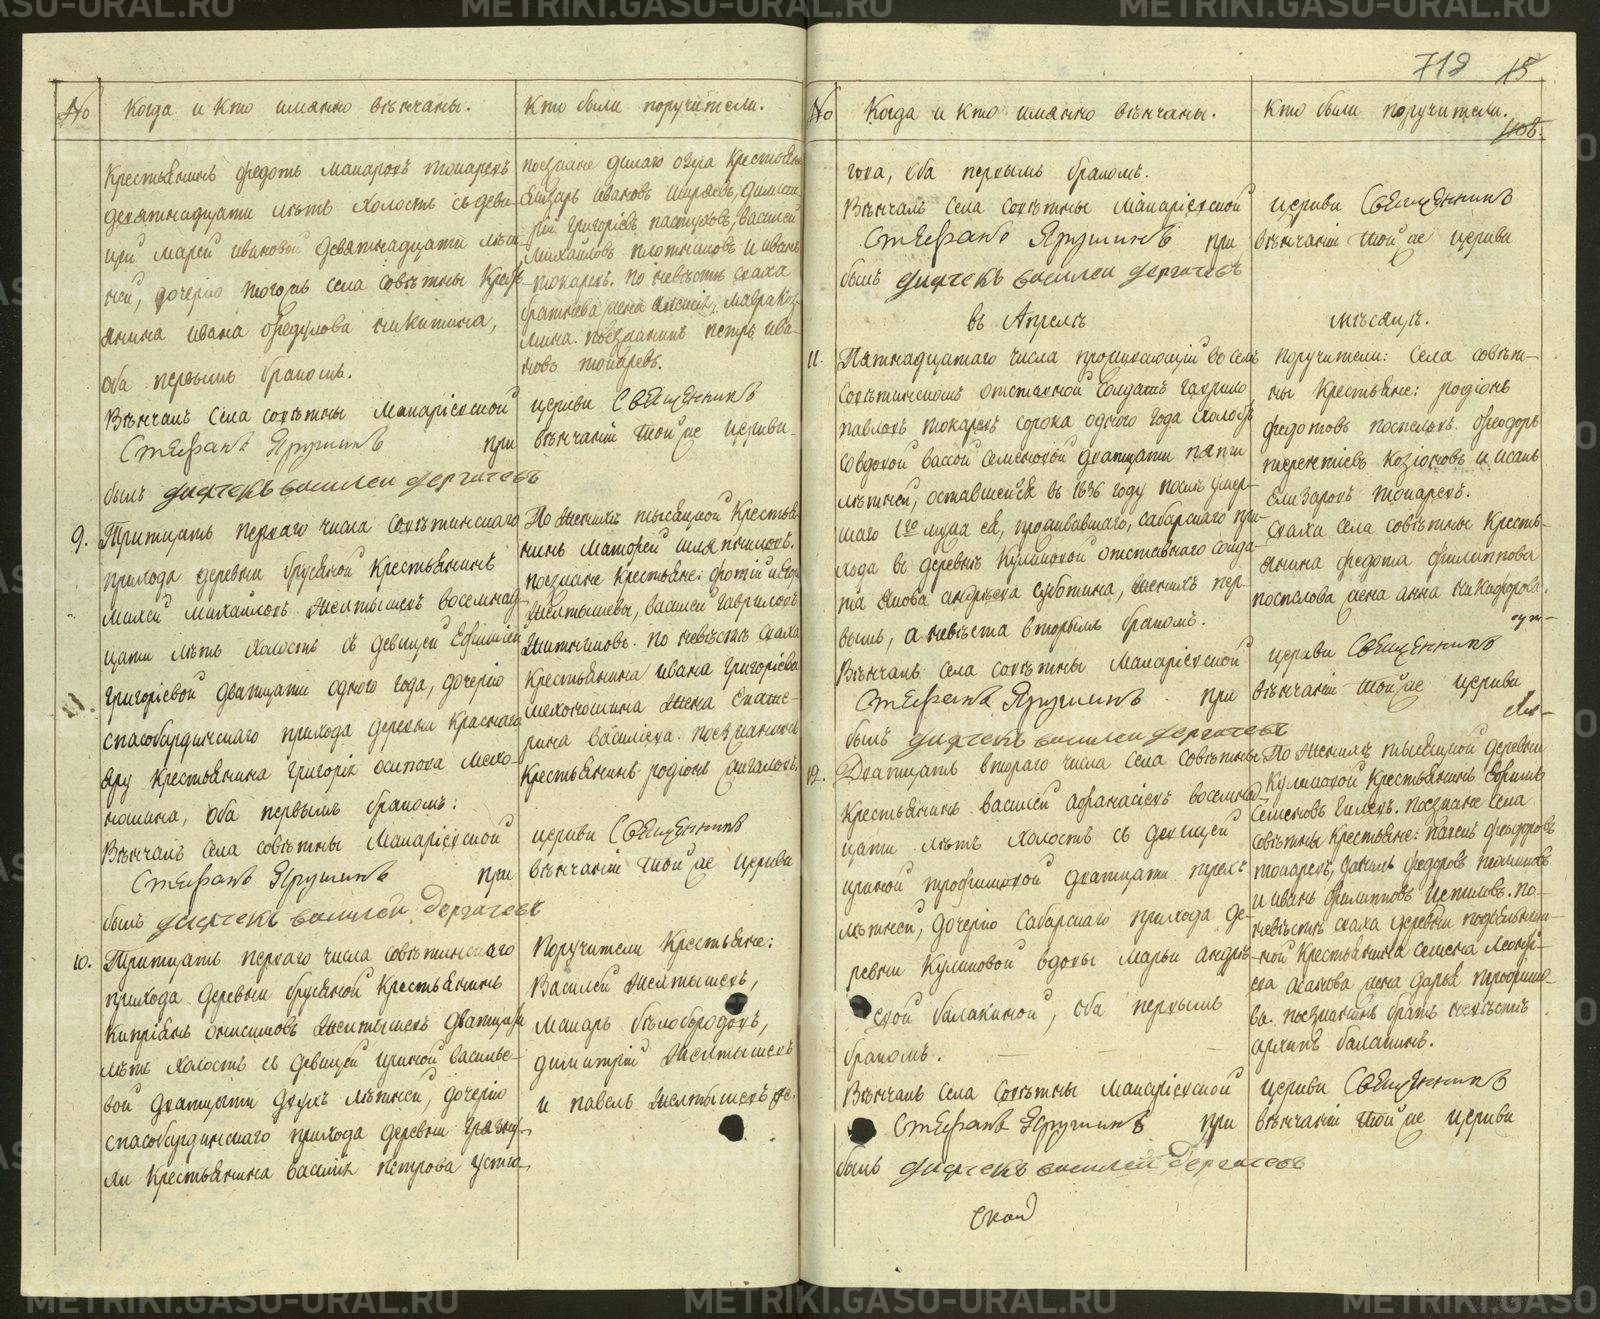 METRIKI.GASU-URAL.RU
718 15
No Когда и кто имянно вѣнчаны. Кто были поручители.
Крестьянинъ Федотъ Макаровъ Токаревъ
девятнадцати лѣтъ холостъ съ деви-
цей Марѳей Ивановой девятнадцати лѣт-
ней, дочерью тогожъ села Совѣтны Кресть-
янина Ивана Федулова Никитина,
оба первымъ бракомъ.
Вѣнчалъ села Совѣтны Макаріевской
Стефанъ Ярушинъ при
былъ дьячекъ Василей Дергачевъ
поезжане
Елизаръ Ивановъ Ширяевъ, Димит-
рій Григорьевъ Пастуховъ, Василей
Михайловъ Плотниковъ и Иванъ
Токаревъ. По невѣстѣ сваха
Петръ Ива-
новъ Токаревъ.
церкви Священникъ
вѣнчаніи той же церкви
9. Тритцать перваго числа Совѣтинскаго
прихода деревни Брусяной Крестьянинъ
Михайловъ Желтышевъ восемнад-
цати лѣтъ холостъ съ девицей Ефимией
Григорьевой дватцати одного года, дочерью
Спасобардинскаго прихода деревни Краснаго
Яру Крестьянина Григорія Осипова Мехо-
ношина, оба первымъ бракомъ:
Вѣнчалъ села Совѣтны Макаріевской
Стефанъ Ярушинъ при
былъ дьячекъ Василей Дергачевъ
По женихѣ тысяцкой Крестья-
нинъ Матфей Шляпниковъ.
поезжане Крестьяне: Фотій и Егоръ
Желтышевы, Василей Гавриловъ
Житниковъ. По невѣстѣ сваха
Крестьянина Ивана Григорьева
Мехоношина жена Екате-
рина Васильева. Поезжанинъ
Крестьянинъ Родіонъ
церкви Священникъ
вѣнчаніи той же церкви
10. Тритцать перваго числа Совѣтинскаго
прихода деревни Брусяной Крестьянинъ
Кипріянъ Онисимовъ Желтышевъ дватцати
лѣтъ холостъ съ девицей Ириной Василье-
вой дватцати двухъ лѣтней, дочерью
Спасобардинскаго прихода деревни
Крестьянина Василія Петрова
Поручители Крестьяне:
Василей Желтышевъ,
Макаръ Бѣлобородовъ,
Димитрій Желтышевъ
и Павелъ Желтышевъ же.
No Когда и кто имянно вѣнчаны. Кто были поручители.
гова, оба первымъ бракомъ.
Вѣнчалъ села Совѣтны Макаріевской
Стефанъ Ярушинъ при
былъ дьячекъ Василей Дергачевъ
церкви Священникъ
вѣнчаніи той же церкви
въ Апрелѣ мѣсяцѣ.
11. Пятнадцатаго числа проживающій въ селѣ
Совѣтинскомъ отставной солдатъ Гаврило
Павловъ Токаревъ сорока одного года холостъ
со вдовой Вассой Семеновой дватцати пяти
лѣтней, оставшейся въ 1836 году послѣ умер-
шаго 1го мужа ея, проживавшаго, Сабарскаго при-
хода въ деревнѣ Куликовой отставнаго солда-
та Якова Андреева Субботина, женихъ пер-
вымъ, а невѣста вторымъ бракомъ.
Вѣнчалъ села Совѣтны Макаріевской
Стефанъ Ярушинъ при
былъ дьячекъ Василей Дергачевъ
Поручители: Села Совѣт-
ны Крестьяне: Родіонъ
Федотовъ Поспеловъ. Феодоръ
Терентіевъ Козіоновъ и Исакъ
Елизаровъ Токаревъ.
Сваха села Совѣтны Кресть-
янина Федота Филиппова
Поспелова жена Анна Никифорова.
церкви Священникъ
вѣнчаніи той же церкви
12. Дватцать втораго числа села Совѣтны
Крестьянинъ Василей Афанасіевъ восемнад-
цати лѣтъ холостъ съ девицей
Ириной Трофимовой дватцати трехъ
лѣтней, дочерью Сабарскаго прихода де-
ревни Куликовой вдовы Марьи Андре-
евой Балакиной, оба первымъ
бракомъ.
Вѣнчалъ села Совѣтны Макаріевской
Стефанъ Ярушинъ при
былъ дьячекъ Василей Дергачевъ
По женихѣ тысяцкой деревни
Куликовой Крестьянинъ Ефимъ
Семеновъ Гилевъ. Поезжане села
Совѣтны Крестьяне: Павелъ Феодоровъ
Токаревъ, Данилъ Федоровъ
и Иванъ Филипповъ По
невѣстѣ сваха деревни
Крестьянина Семена
жена Дарья Трофимо-
ва. поезжанинъ братъ невѣстѣ
Архипъ Балакинъ.
церкви Священникъ
вѣнчаніи той же церкви
METRIKI.GASU-URAL.RU